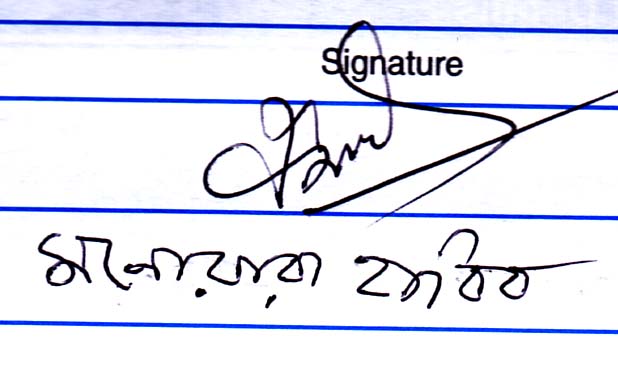 Signature
মনোয়ারা হাবিব